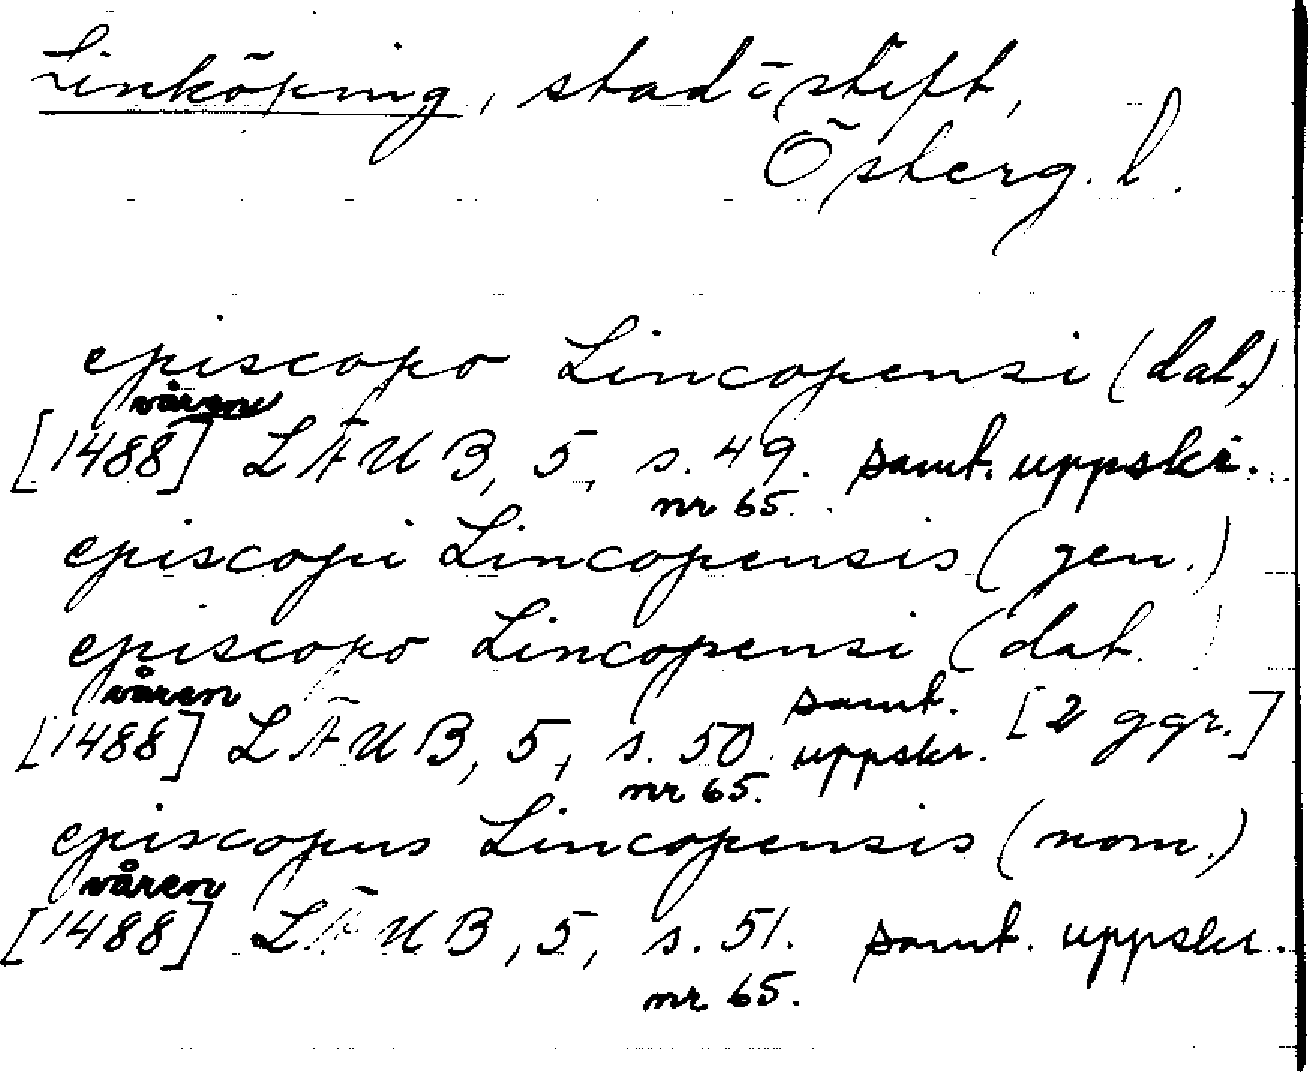 Linköping, stad o stift,
Österg. l.
episcopo Lincopensi (dat.)
våren
[1488] LÄUB, 5, s. 49. samt. uppskr.
nr 65.
episcopi Lincopensis (gen.)
episcopo Lincopensi (dat.)
våren
[1488] LÄUB, 5, s. 50. samt. uppskr. [2 ggr.]
nr 65.
episcopus Lincopensis (nom.)
våren
[1488] LÄUB, 5, s. 51. samt. uppskr.
nr 65.